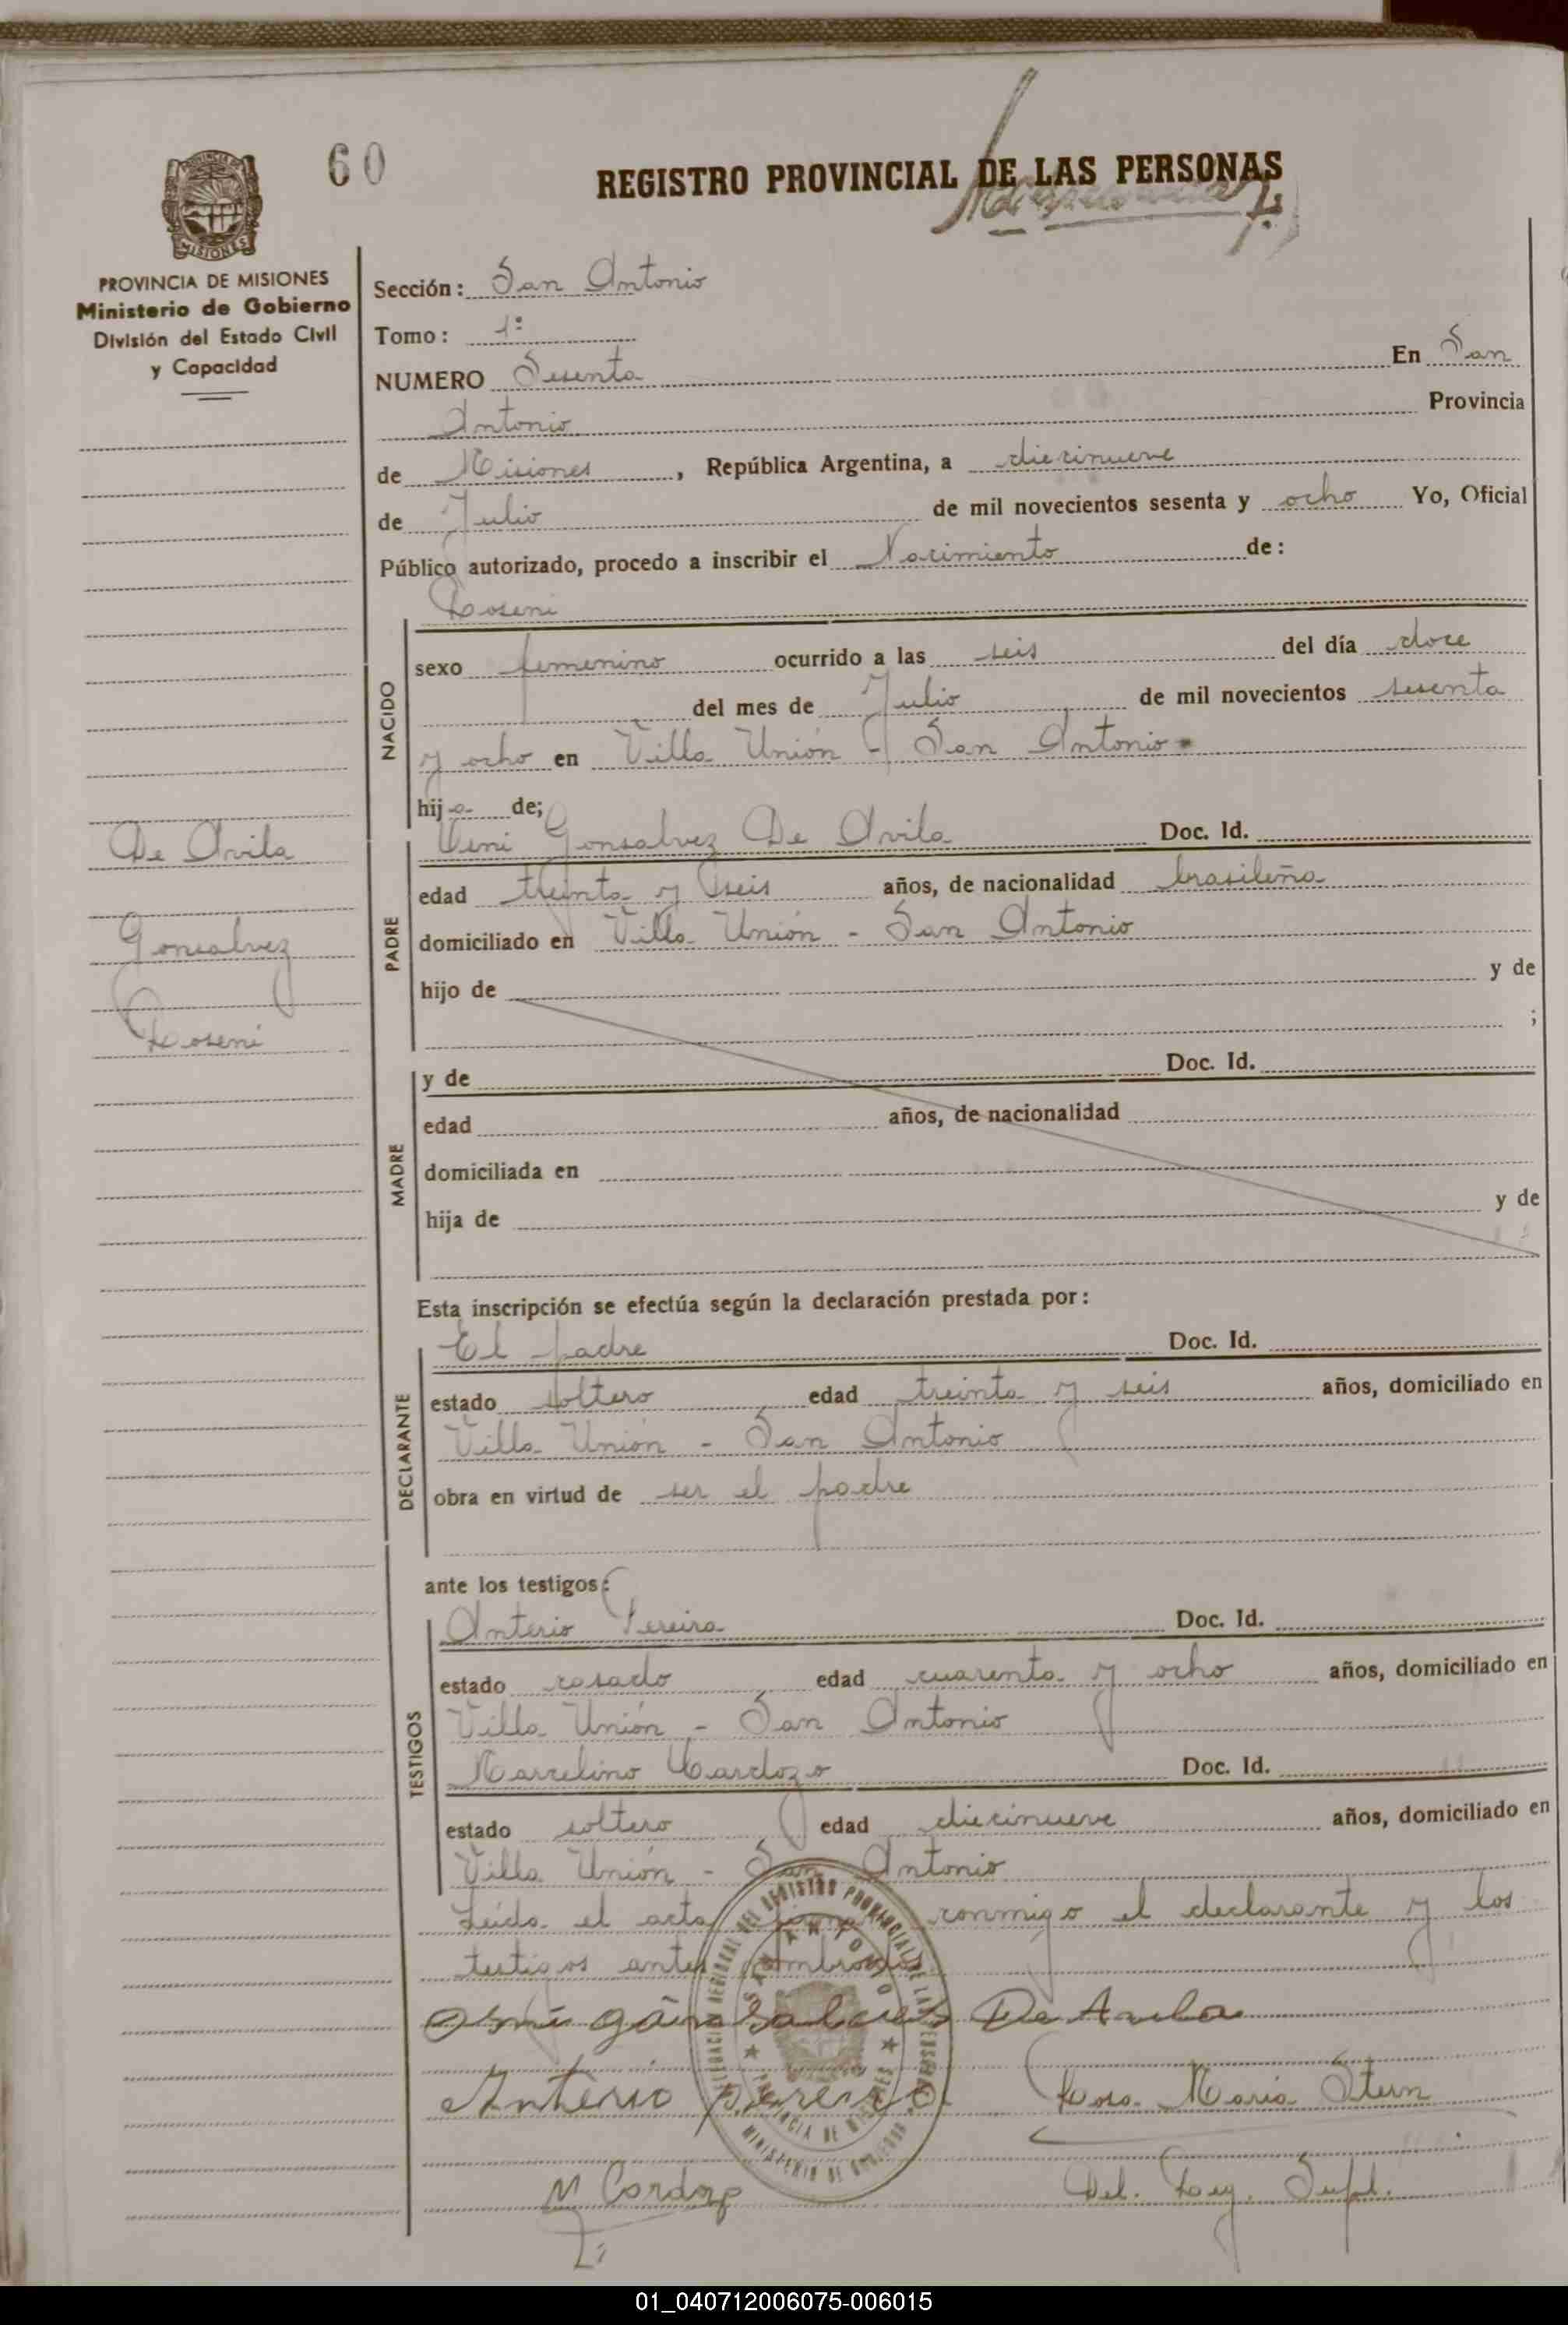 60
REGISTRO PROVINCIAL DE LAS PERSONAS
PROVINCIA DE MISIONES
Ministerio de Gobierno
División del Estado Civil
y Capacidad
Sección: San Antonio
Tomo: 1º
NUMERO Sesenta En San
Antonio Provincia
de Misiones, República Argentina, a diecinueve
de Julio de mil novecientos sesenta y ocho Yo, Oficial
Público autorizado, procedo a inscribir el Nacimiento de:
Roseni
NACIDO
sexo femenino ocurrido a las seis del día doce
del mes de Julio de mil novecientos sesenta
y ocho en Villa Unión - San Antonio
hija de;
De Avila
Gonsalvez
Roseni
PADRE
Gonsalvez De Avila Doc. Id.
edad treinta y seis años, de nacionalidad brasileña
domiciliado en Villa Unión - San Antonio
hijo de y de
;
MADRE
y de Doc. Id.
edad años, de nacionalidad
domiciliada en
hija de y de
Esta inscripción se efectúa según la declaración prestada por:
DECLARANTE
El padre Doc. Id.
estado soltero edad treinta y seis años, domiciliado en
Villa Unión - San Antonio
obra en virtud de ser el padre
ante los testigos:
TESTIGOS
Anterio Pereira Doc. Id.
estado casado edad cuarenta y ocho años, domiciliado en
Villa Unión - San Antonio
Marcelino Cardozo Doc. Id.
estado soltero edad diecinueve años, domiciliado en
Villa Unión - San Antonio
Leída el acta, firma conmigo el declarante y los
testigos antes nombrados.
De Avila
Anterio Pereira
Rosa María Stern
M Cardozo
Del. Reg. Supl.
SAN ANTONIO
PROVINCIA DE MISIONES
MINISTERIO DE GOBIERNO
01_040712006075-006015